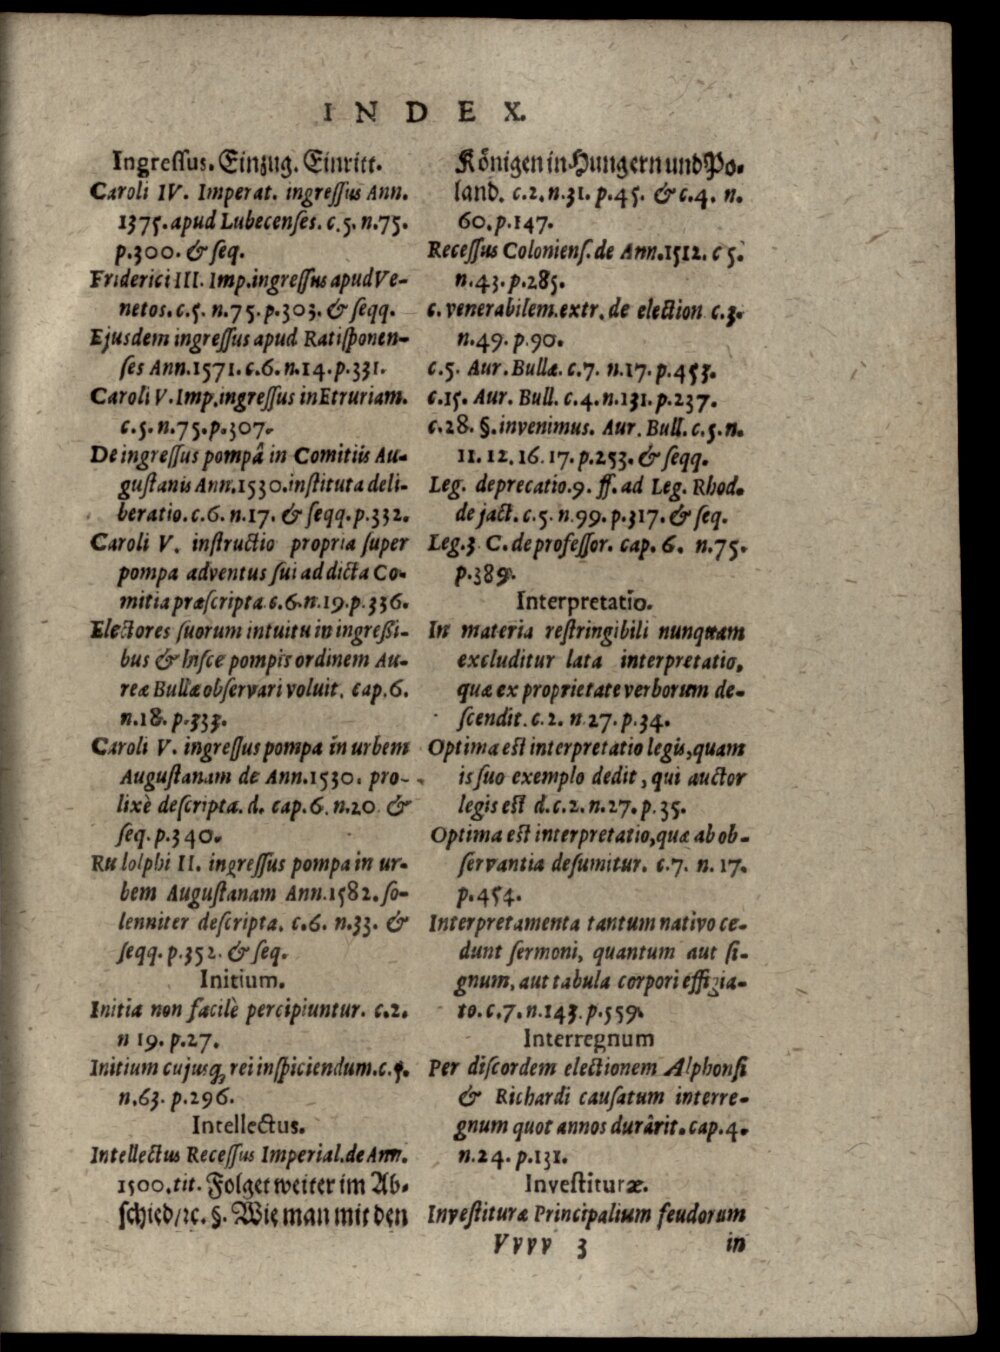 INDEX.
Ingreſſus. Einzug. Einritt.
Caroli IV. Imperat. ingreſſus Ann.
1375. apud Lubecenſes. c.5. n.75.
p.300. & ſeq.
Friderici III. Imp. ingreſſus apud Ve-
netos. c.5. n.75. p.303. & ſeqq.
Ejusdem ingreſſus apud Ratiſponen-
ſes Ann.1571. c.6. n.14. p.331.
Caroli V. Imp. ingreſſus in Etruriam.
c.5. n.75. p.307.
De ingreſſus pompâ in Comitiis Au-
guſtanis Ann.1530. inſtituta deli-
beratio. c.6. n.17. & ſeqq. p.332.
Caroli V. inſtructio propria ſuper
pompa adventus ſui ad dicta Co-
mitia præſcripta c.6. n.19. p.336.
Electores ſuorum intuitu in ingreßi-
bus & hiſce pompis ordinem Au-
reæ Bullæ obſervari voluit. cap.6.
n.18. p.333.
Caroli V. ingreſſus pompa in urbem
Auguſtanam de Ann.1530. pro-
lixè deſcripta. d. cap.6. n.20 &
ſeq. p.340.
Rudolphi II. ingreſſus pompa in ur-
bem Auguſtanam Ann.1582. ſo-
lenniter deſcripta. c.6. n.33. &
ſeqq. p.352. & ſeq.
Initium.
Initia non facilè percipiuntur. c.2.
n 19. p.27.
Initium cujusq; rei inſpiciendum. c.5.
n.63. p.296.
Intellectus.
Intellectus Receſſus Imperial. de Ann.
1500. tit. Folget weiter im Ab-
ſchied/ ꝛc. §. Wie man mit den
Königen in Hungern und Po-
land. c.2. n.31. p.45. & c.4. n.
60. p.147.
Receſſus Colonienſ. de Ann.1512. c 5.
n.43. p.285.
c. venerabilem. extr. de election c.3.
n.49. p.90.
c.5. Aur. Bullæ. c.7. n.17. p.453.
c.15. Aur. Bull. c.4. n.131. p.237.
c.28. §. invenimus. Aur. Bull. c.5. n.
11. 12. 16. 17. p.253. & ſeqq.
Leg. deprecatio. 9. ff. ad Leg. Rhod.
de jact. c.5. n.99. p.317. & ſeq.
Leg.3 C. de profeſſor. cap. 6. n.75.
p.389.
Interpretatio.
In materia reſtringibili nunquam
excluditur lata interpretatio,
quæ ex proprietate verborum de-
ſcendit. c.2. n 27. p.34.
Optima eſt interpretatio legis, quam
is ſuo exemplo dedit, qui auctor
legis eſt d.c.2. n.27. p.35.
Optima eſt interpretatio, quæ ab ob-
ſervantia deſumitur. c.7. n. 17.
p.454.
Interpretamenta tantum nativo ce-
dunt ſermoni, quantum aut ſi-
gnum, aut tabula corpori effigia-
to. c.7. n.143. p.559.
Interregnum
Per diſcordem electionem Alphonſi
& Richardi cauſatum interre-
gnum quot annos durârit. cap.4.
n.24. p.131.
Inveſtituræ.
Inveſtituræ Principalium feudorum
Vvvv 3 in